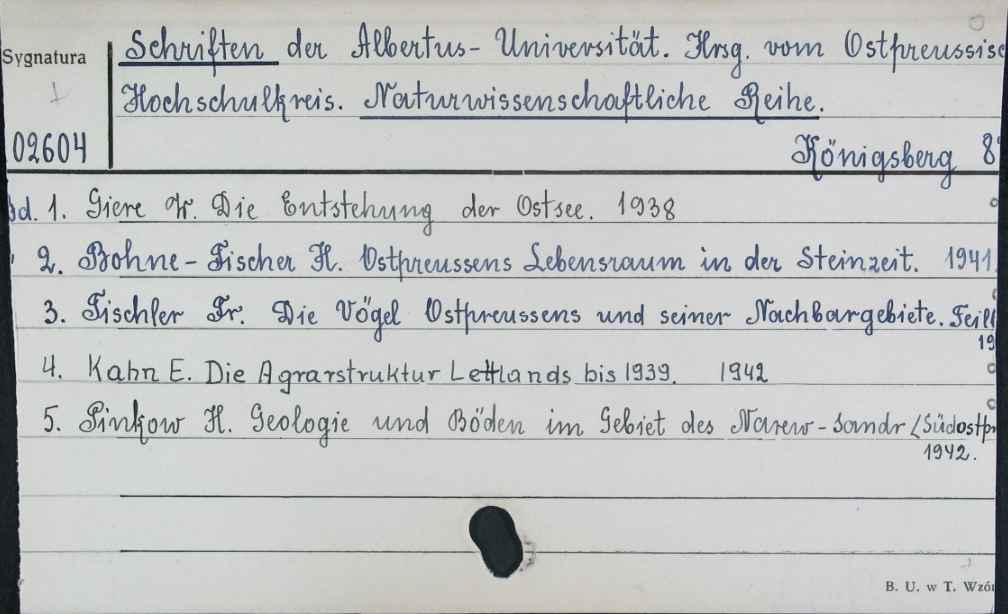 Schriften der Albertus-Universität. Hrsg. vom Ostpreussisc
Sygnatura
Hochschulkreis. Naturwissenschaftliche Reihe.
02604
Königsberg 8°
Bd. 1. Giere W. Die Entstehung der Ostsee. 1938
2. Bohne-Fischer H. Ostpreussens Lebensraum in der Steinzeit. 1941
3. Tischler Fr. Die Vögel Ostpreussens und seiner Nachbargebiete. Teil1
19
4. Kahn E. Die Agrarstruktur Lettlands bis 1939. 1942
5. Pinkow H. Geologie und Böden im Gebiet des Narew-Sandr (Südostpr
1942.
B. U. w T. Wzór